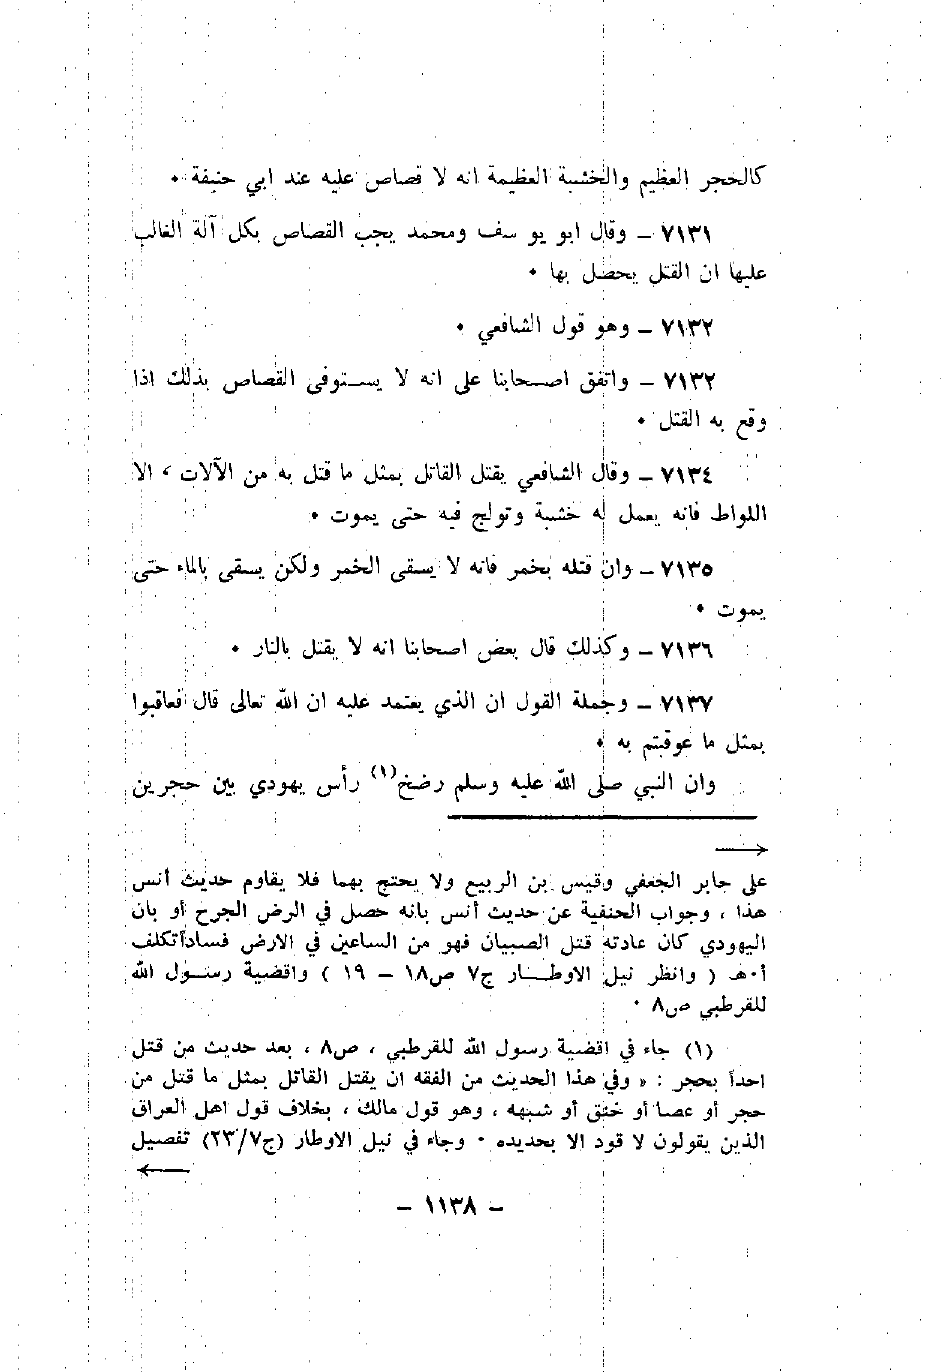 كالحجر العظيم والخشبة العظيمة انه لا قصاص عليه عند ابي حنيفة ٠
٧١٣١ – وقال ابو يو سف ومحمد يجب القصاص بكل آلة الغالب
عليها ان القتل يحصل بها ٠
٧١٣٢ – وهو قول الشافعي ٠
٧١٣٢ – واتفق اصحابنا على انه لا يستوفى القصاص بذلك اذا
وقع به القتل ٠
٧١٣٤ – وقال الشافعي يقتل القاتل بمثل ما قتل به من الآلات ، الا
اللواط فانه يعمل له خشبة وتولج فيه حتى يموت ٠
٧١٣٥ – وان قتله بخمر فانه لا يسقى الخمر ولكن يسقى بالماء حتى
يموت ٠
٧١٣٦ – وكذلك قال بعض اصحابنا انه لا يقتل بالنار ٠
٧١٣٧ – وجملة القول ان الذي يعتمد عليه ان الله تعالى قال فعاقبوا
بمثل ما عوقبتم به ٠
وان النبي صلى الله عليه وسلم رضخ(١) رأس يهودي بين حجرين
على جابر الجعفي وقيس بن الربيع ولا يحتج بهما فلا يقاوم حديث أنس
هذا ، وجواب الحنفية عن حديث أنس بانه حصل في الرض الجرح أو بان
اليهودي كان عادته قتل الصبيان فهو من الساعين في الارض فساداً تكلف
أ٠هـ ( وانظر نيل الاوطار ج٧ ص١٨ – ١٩ ) واقضية رسول الله
للقرطبي ص٨ ٠
(١) جاء في اقضية رسول الله للقرطبي ، ص٨ ، بعد حديث من قتل
احداً بحجر : « وفي هذا الحديث من الفقه ان يقتل القاتل بمثل ما قتل من
حجر أو عصا أو خنق أو شبهه ، وهو قول مالك ، بخلاف قول اهل العراق
الذين يقولون لا قود الا بحديده ٠ وجاء في نيل الاوطار (ج٢٣/٧) تفصيل
– ١١٣٨ –